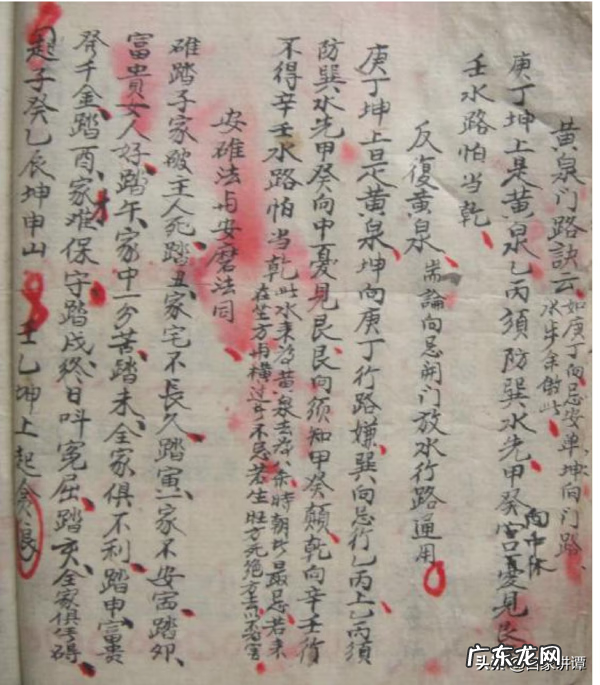 黄泉门路訣云 如庚丁向忌安单坤向门路 放步余倣此
庚丁坤上是黄泉乙丙須防巽水先甲癸宫憂見艮
向中休
壬水路怕当乾
反復黄泉 耑論向忌開门放水行路通用
庚丁坤上是黄泉坤向庚丁行路嫌巽向忌行乙丙上乙丙須
防巽水先甲癸向中憂見艮艮向須知甲癸顛乾向辛壬行
不得辛壬水路怕当乾 此水来为黄泉去为八杀時朝 最忌若来
在坐方与横过 不忌若生旺方死絶 去以 害
安碓法与安磨法同
碓踏子家破王人死踏丑家宅不長久踏寅一家不安甯踏卯
富貴女人好踏午家中一分苦踏未全家俱不利踏申富贵
發千金踏酉家难保守踏戌終日呌冤屈踏亥全家俱 碍
起子癸乙辰坤申山 壬乙坤上起贪狼
广东龙网
头条@百家讲谭